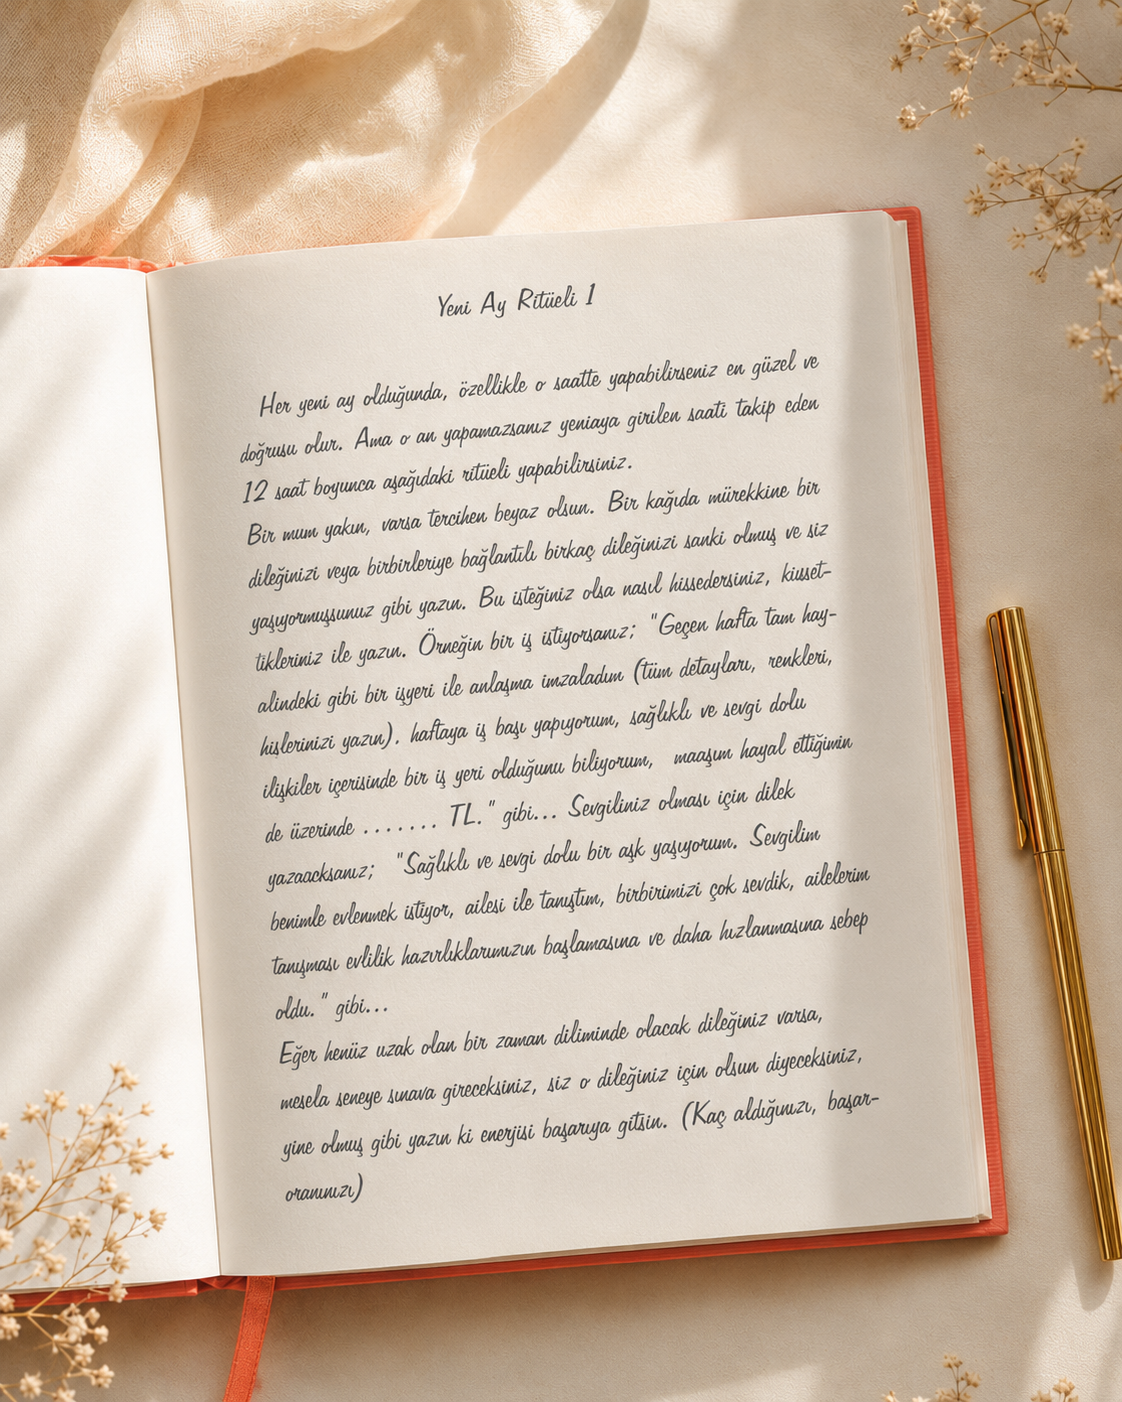 Yeni Ay Ritüeli 1
Her yeni ay olduğunda, özellikle o saatte yapabilirseniz en güzel ve
doğrusu olur. Ama o an yapamazsanız yeniaya girilen saati takip eden
12 saat boyunca aşağıdaki ritüeli yapabilirsiniz.
Bir mum yakın, varsa tercihen beyaz olsun. Bir kağıda mürekkine bir
dileğinizi veya birbirleriye bağlantılı birkaç dileğinizi sanki olmuş ve siz
yaşıyormuşsunuz gibi yazın. Bu isteğiniz olsa nasıl hissedersiniz, kısset-
tikleriniz ile yazın. Örneğin bir iş istiyorsanız; "Geçen hafta tam hay-
alindeki gibi bir işyeri ile anlaşma imzaladım (tüm detayları, renkleri,
hislerinizi yazın). haftaya iş başı yapıyorum, sağlıklı ve sevgi dolu
ilişkiler içerisinde bir iş yeri olduğunu biliyorum, maaşım hayal ettiğimin
de üzerinde ....... TL." gibi... Sevgiliniz olması için dilek
yazaacksanız; "Sağlıklı ve sevgi dolu bir aşk yaşıyorum. Sevgilim
benimle evlenmek istiyor, ailesi ile tanıştım, birbirimizi çok sevdik, ailelerim
tanışması evlilik hazırlıklarımızın başlamasına ve daha hızlanmasına sebep
oldu." gibi...
Eğer henüz uzak olan bir zaman diliminde olacak dileğiniz varsa,
mesela seneye sınava gireceksiniz, siz o dileğiniz için olsun diyeceksiniz,
yine olmuş gibi yazın ki enerjisi başarıya gitsin. (Kaç aldığınızı, başar-
oranınızı)